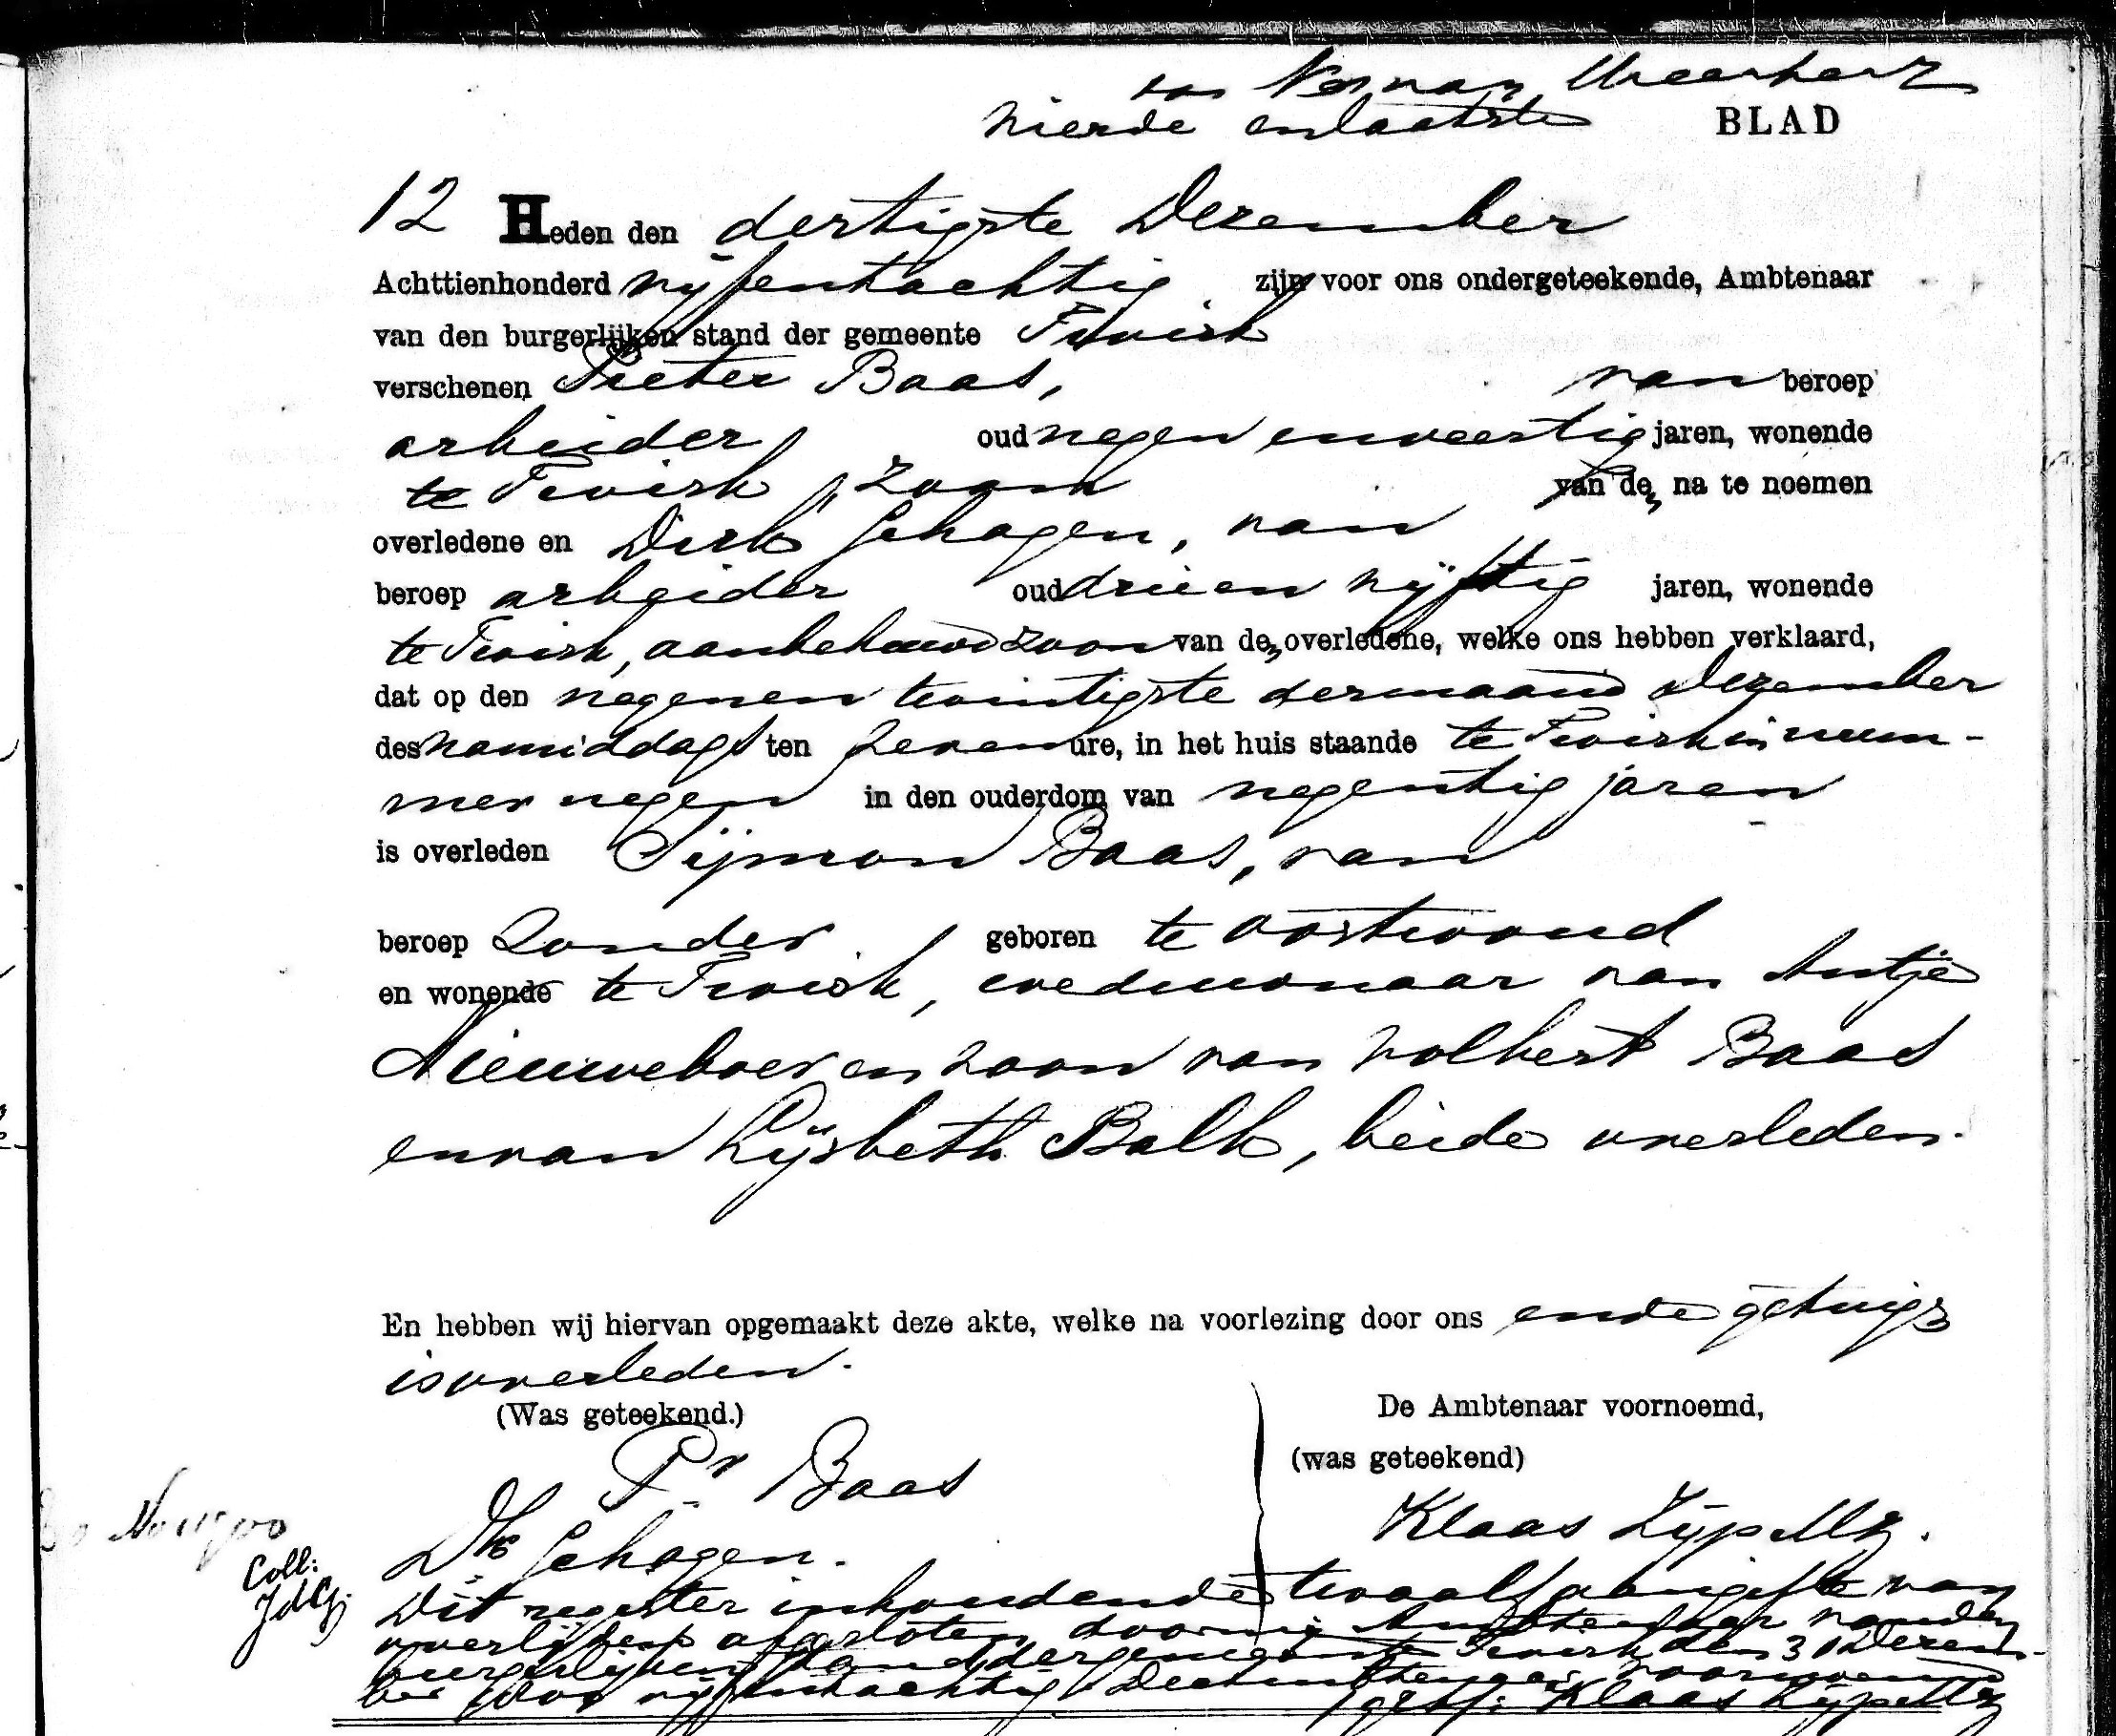 vierde en laatste BLAD
12 Heden den dertigste Dezember
Achttienhonderd vijfentachtig zijn voor ons ondergeteekende, Ambtenaar
van den burgerlijken stand der gemeente Twisk
verschenen Pieter Baas, van beroep
arbeider, oud negenenveertig jaren, wonende
te Twisk, zoon van den na te noemen
overledene en Dirk Schagen, van
beroep arbeider oud drieenvijftig jaren, wonende
te Twisk, aanbehuwdzoon van den overledene, welke ons hebben verklaard,
dat op den negenentwintigste der maand Dezember
des namiddags ten zeven ure, in het huis staande te Twisk in num-
mer negen in den ouderdom van negentig jaren
is overleden Sijmon Baas, van
beroep zonder, geboren te Oostwoud
en wonende te Twisk, weduwnaar van Antje
Nieuweboer en zoon van Volbert Baas
en van Lijsbeth Balk, beide overleden.
En hebben wij hiervan opgemaakt deze akte, welke na voorlezing door ons en de getuigs
is overleden.
(Was geteekend.)
Pr Baas
Dk Schagen.
De Ambtenaar voornoemd,
(was geteekend)
Klaas Zijp Mz.
Coll:
Dit register inhoudende twaalf aangifte van
overlijden afgesloten door mij Ambtenaar van den
burgerlijken stand der gemeente Twisk den 31 Dezem-
ber 1800 vijfentachtig De Ambtenaar voornoemd
get: Klaas Zijp Mz